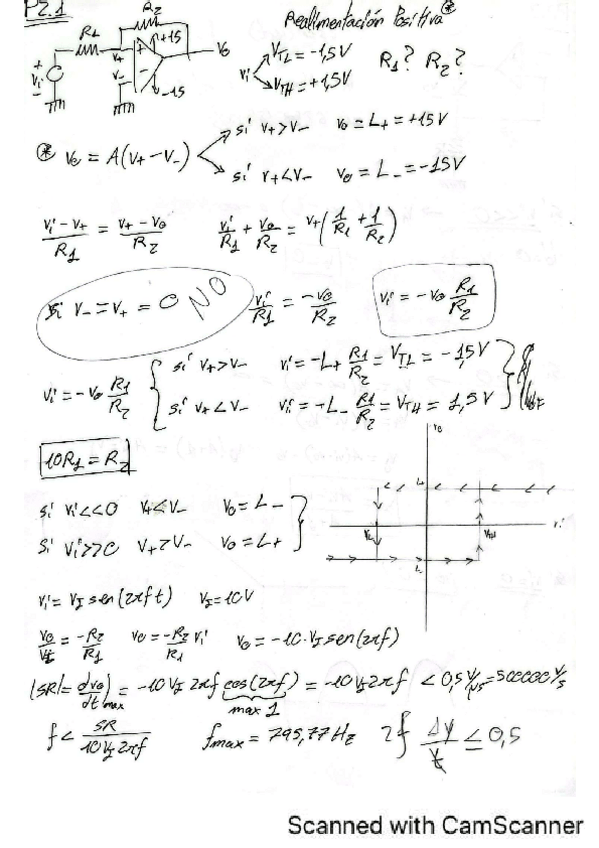 PZ.1
R2
Realimentación Positiva ⊛
R1
+15
V+
V0
+
Vi
-
V-
-15
Vi
VTL = -1,5V
VTH = +1,5V
R1? R2?
⊛ V0 = A(V+ - V-)
si V+ > V- V0 = L+ = +15V
si V+ < V- V0 = L- = -15V
(Vi - V+)/R1 = (V+ - V0)/R2 Vi/R1 + V0/R2 = V+(1/R1 + 1/R2)
si V- = V+ = 0 NO Vi/R1 = -V0/R2 Vi = -V0 R1/R2
Vi = -V0 R1/R2
si V+ > V- Vi = -L+ R1/R2 = VTL = -1,5V
si V+ < V- Vi = -L- R1/R2 = VTH = 1,5V
10R1 = R2
V0
L+
VTL
VTH
Vi
L-
si Vi << 0 V+ < V- V0 = L-
si Vi >> 0 V+ > V- V0 = L+
Vi = VI sen(2πft) VI = 10V
V0/Vi = -R2/R1 V0 = -R2/R1 Vi V0 = -10·VI sen(2πf)
|SR| = dV0/dt max = -10VI 2πf cos(2πf) = -10VI 2πf < 0,5 V/μs = 500000 V/s
max 1
f < SR/(10VI 2πf) fmax = 795,77 Hz 2f ΔV/t ≤ 0,5
Scanned with CamScanner